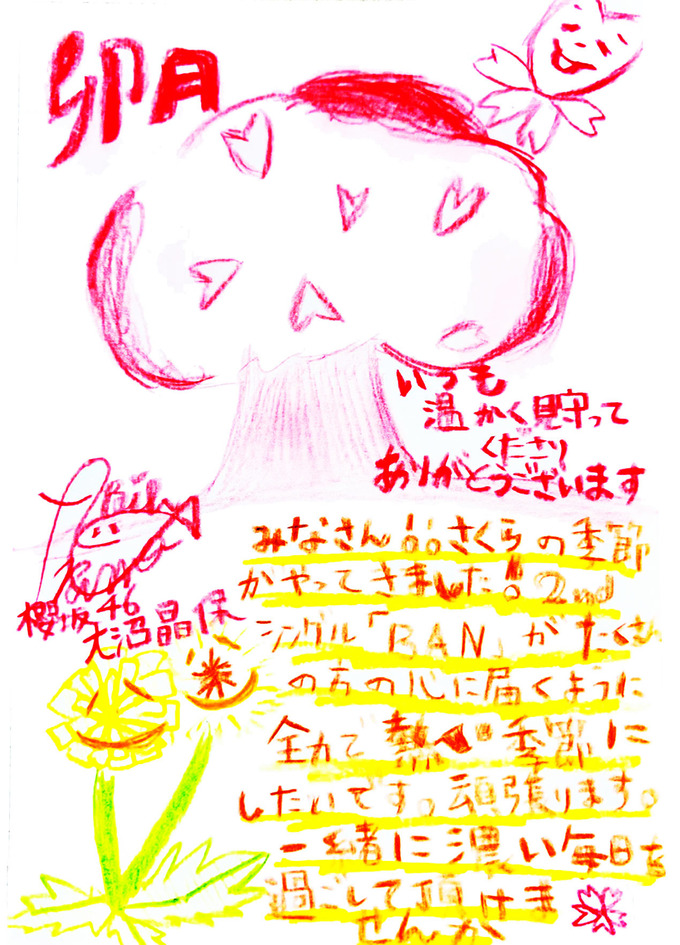 卯月
いつも
温かく貯って
くださり
ありがとうございます
櫻坂46
大沼晶保
みなさん!!さくらの季節
がやってきました!2nd
シングル「BAN」がたくさん
の方の心に届くように
全力で熱い季節に
したいです。頑張ります。
一緒に濃い毎日を
過ごして頂けま
せんか